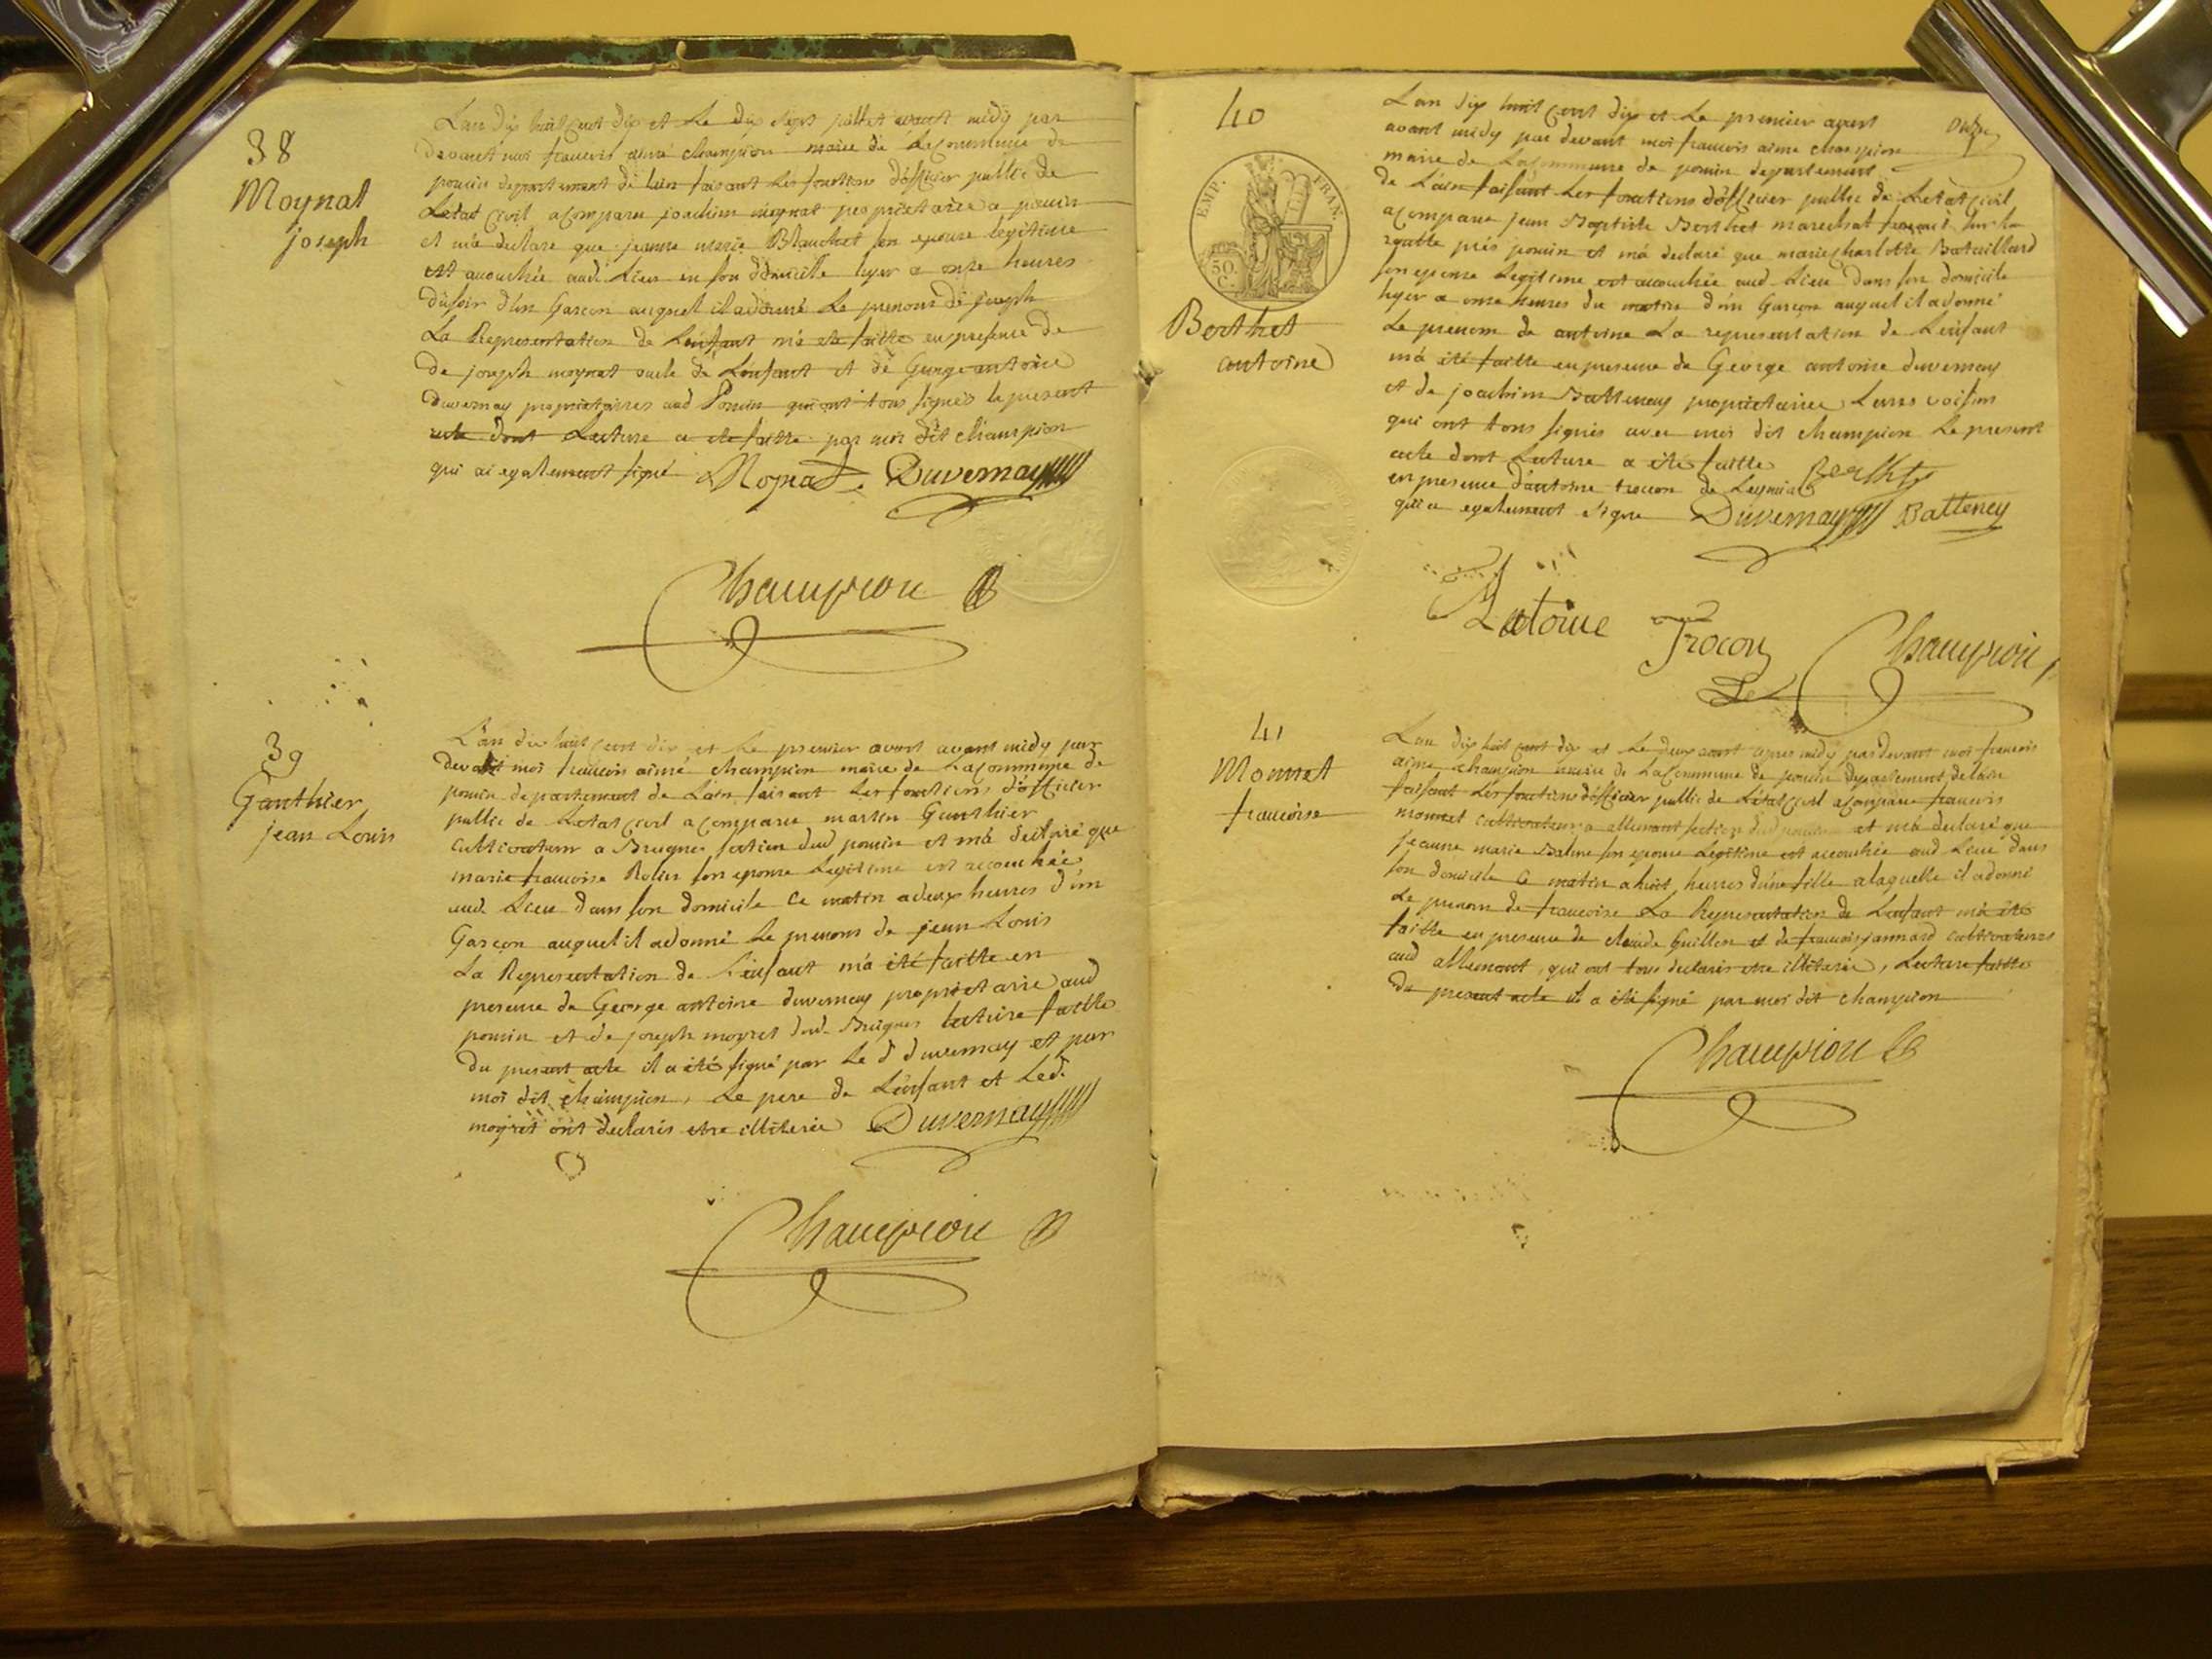 38
Moynat
joseph
L'an dix huit cent dix et le dix sept juillet avant midy par
devant moi francois aimé champion maire de la commune de
poncin departement de lain faisant les fonctions d'officier public de
Letat civil a comparu joachim moynat proprietaire a poncin
et m'a declaré que jeanne marie Blanchet son epouse legitime
est accouchée aud. Lieu en son domicile hyer a onze heures
du soir d'un Garcon auquel il a donné le prenom de joseph
La Representation de Lenfant m'a ete faitte en presence de
de joseph moynat oncle de Lenfant et de George antoine
duvernay proprietaires aud Poncin qui ont tous signés le present
acte dont Lecture a ete faitte par moi dit champion
qui ai egalement signé Moynat Duvernay
Champion
39
Gauthier
jean Louis
L'an dix huit cent dix et le premier aoust avant midy par
devant moi francois aimé champion maire de La commune de
poncin departement de Lain faisant Les fonctions d'officier
public de Letat civil a comparu martin Gauthier
cultivateur a Breignes section dud poncin et m'a declaré que
marie francoise Rolin son epouse Legitime est accouchée
aud. Lieu dans son domicile ce matin a deux heures d'un
Garcon auquel il a donné le prenom de jean Louis
La Representation de L'enfant m'a été faitte en
presence de George antoine duvernay proprietaire aud
poncin et de joseph moyret dud. Breignes lecture faitte
du present acte il a été signé par Le d duvernay et par
moi dit champion, Le pere de L'enfant et Led.
moyret ont declarés etre illiterés Duvernay
Champion
40
EMP. FRAN.
50 C.
Berthet
antoine
L'an dix huit cent dix et Le premier aoust
avant midy par devant moi francois aimé champion
maire de La commune de poncin departement
de L'ain faisant Les fonctions d'officier public de Letat civil
a comparu jean Baptiste Berthet marechal sur la
routte prés poncin et m'a declaré que marie charlotte Bataillard
son epouse Legitime est accouchée aud Lieu dans son domicile
hyer a onze heures du matin d'un Garcon auquel il a donné
Le prenom de antoine La representation de Lenfant
m'a été faitte en presence de George antoine duvernay
et de joachim Batteney proprietaires Leurs voisins
qui ont tous signés avec moi dit champion Le present
acte dont Lecture a été faitte Berthet
en presence d'antoine trocon de Leymiat
qui a egalement signe Duvernay Batteney
Antoine Trocon Champion
41
Monnet
francoise
L'an dix huit cent dix et Le deux aoust apres midy pardevant moi francois
aimé champion maire de La Commune de poncin departement de Lain
faisant Les fonctions d'officier public de Létat civil a comparu francois
monnet cultivateur a allemant section dud poncin et m'a declaré que
jeanne marie son epouse Legitime est accouchée aud Lieu dans
son domicile ce matin a huit heures d'une fille a laquelle il a donné
Le prenom de francoise La Representation de Lenfant m'a été
faitte en presence de claude Guillon et de francois jannard cultivateurs
aud allemant, qui ont tous declarés etre illiterés, Lecture faitte
du present acte il a été signé par moi dit champion
Champion